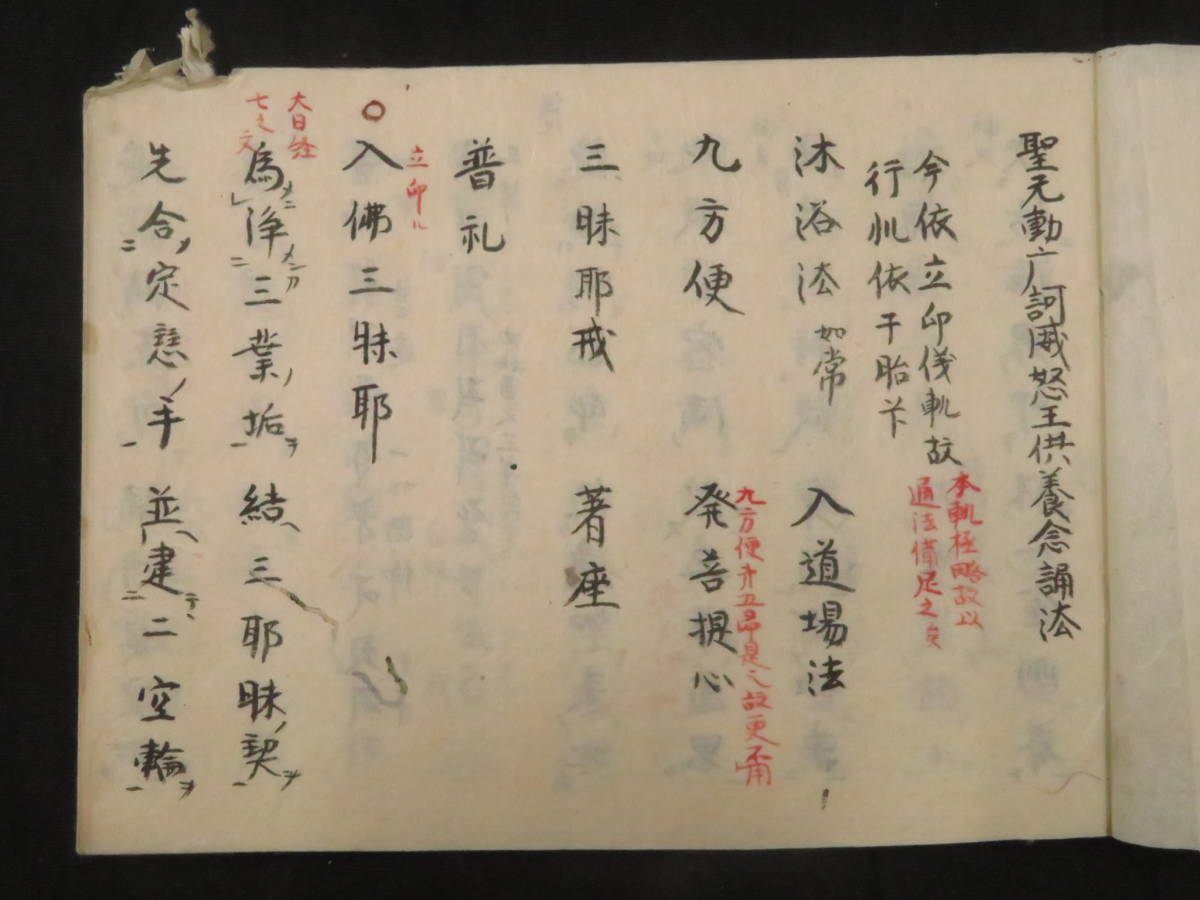 聖无動广訶威怒王供養念誦法
今依立印儀軌故
行 依干胎
本軌極略故以
通法備足之矣
沐浴法 如常 入道場法
九方便 発菩提心
九方便 五 是之故更不用
三昧耶戒 著座
普礼
入佛三昧耶
立印ル
大日経
七之文
為ニ浄メニカ三業ノ垢ヲ結ヘ三耶昧ノ契ヲ
先合ノ定慧ノ手並ヘ建テ、二空輪ヲ